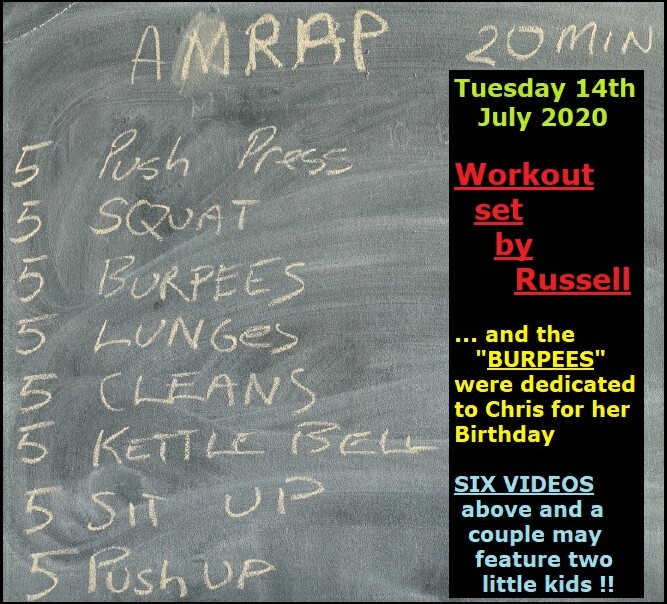 AMRAP 20 MIN
5 Push Press
5 SQUAT
5 BURPEES
5 LUNGES
5 CLEANS
5 KETTLE BELL
5 SIT UP
5 PUSH UP
Tuesday 14th
July 2020
Workout
set
by
Russell
... and the
"BURPEES"
were dedicated
to Chris for her
Birthday
SIX VIDEOS
above and a
couple may
feature two
little kids !!